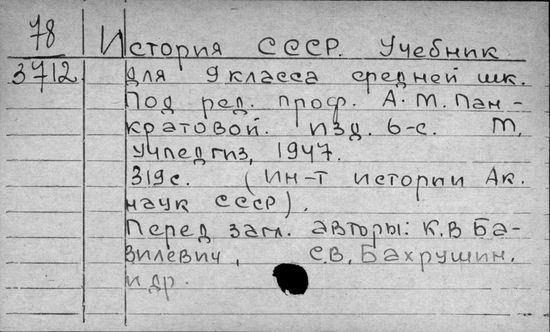 78
3712.
История СССР. Учебник
для 9 класса средней шк.
Под ред. проф. А.М. Пан-
кратовой. Изд. 6-е. М,
Учпедгиз, 1947.
319с. (Ин-т истории Ак.
наук СССР).
Перед загл. авторы: К.В Ба-
зилевич, С.В. Бахрушин.
и др.